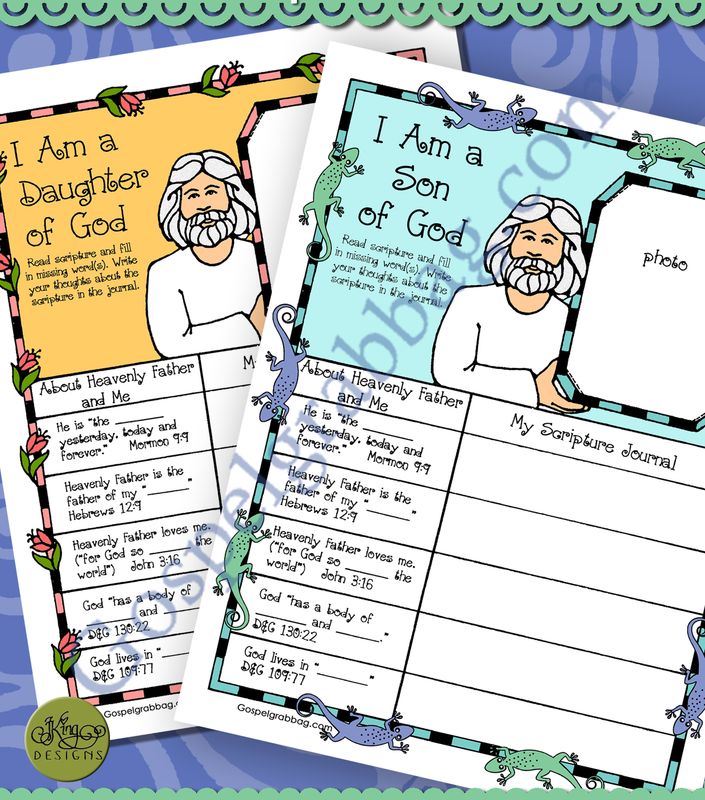 I Am a
Daughter
of God
Read scripture and fill
in missing word(s). Write
your thoughts about the
scripture in the journal.
About Heavenly Father
and Me
He is "the
yesterday, today and
forever." Mormon 9:9
Heavenly Father is the
father of my "______"
Hebrews 12:9
Heavenly Father loves me.
("for God so ______ the
world") John 3:16
God "has a body of
______ and ______
D&C 130:22
God lives in "______
D&C 109:77
Gospelgrabbag.co
I Am a
Son
of God
Read scripture and fill
in missing word(s). Write
your thoughts about the
scripture in the journal.
photo
About Heavenly Father
and Me
My Scripture Journal
He is "the ______
yesterday, today and
forever." Mormon 9:9
Heavenly Father is the
father of my "______"
Hebrews 12:9
Heavenly Father loves me.
("for God so ______ the
world") John 3:16
God "has a body of
______ and ______."
D&C 130:22
God lives in "______"
D&C 109:77
Gospelgrabbag.com
Gospelgrabbag.com
JKing
DESIGNS